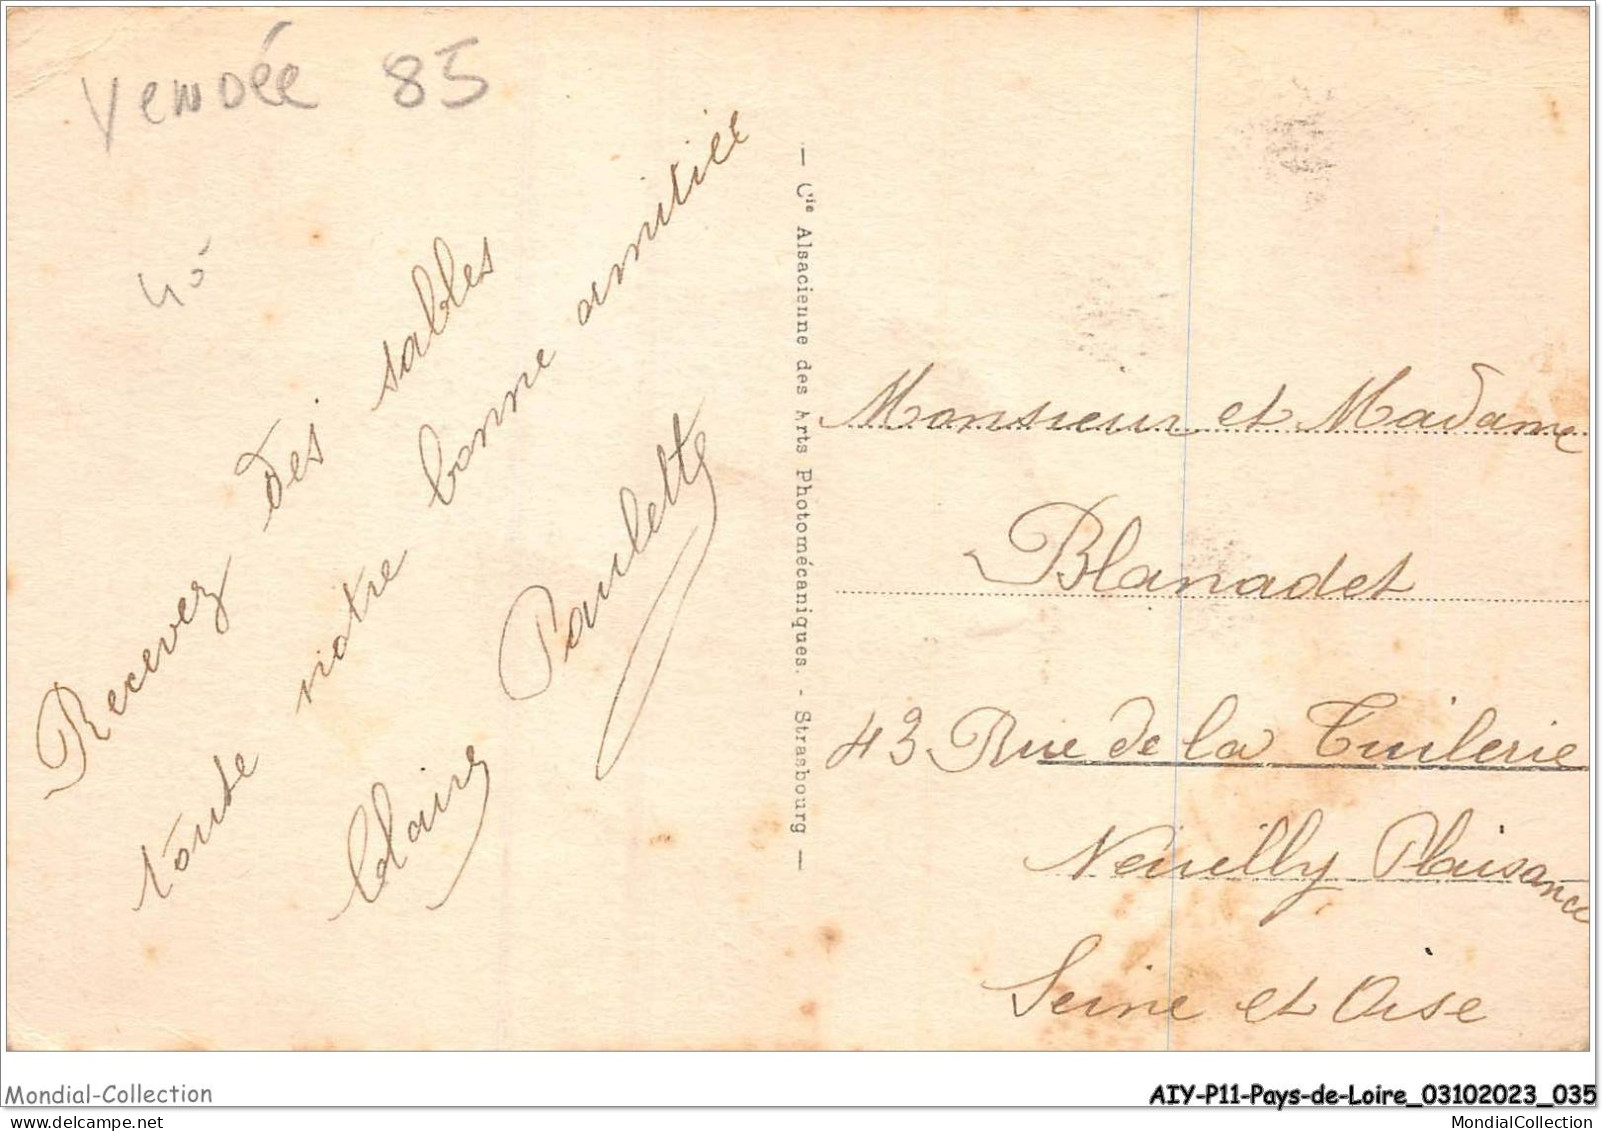 Vendée 85
40
Recevez des sables
toute notre bonne amitiée
Claire Paulette
— Cie Alsacienne des Arts Photomécaniques. - Strasbourg —
Monsieur et Madame
Blanadet
43 Rue de la Tuilerie
Neuilly Plaisance
Seine et Oise
Mondial-Collection
AIY-P11-Pays-de-Loire_03102023_035
www.delcampe.net
MondialCollection